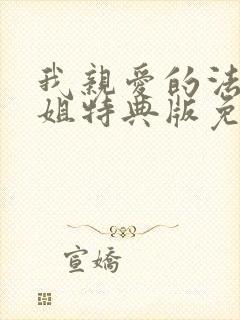 我親愛的法
姐特典版免
宣嬌